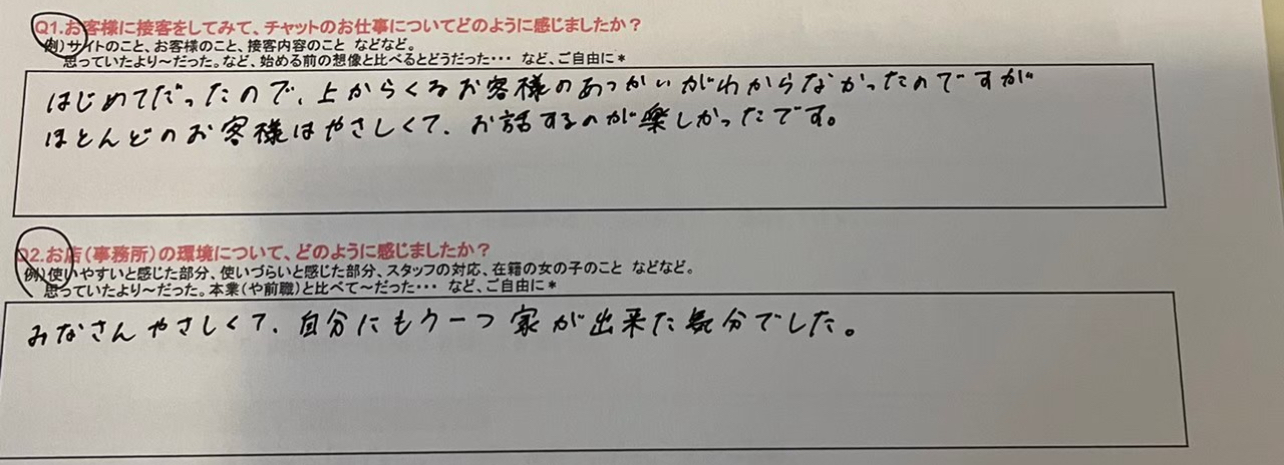 Q1.お客様に接客をしてみて、チャットのお仕事についてどのように感じましたか？
例）サイトのこと、お客様のこと、接客内容のこと などなど。
思っていたより～だった。など、始める前の想像と比べるとどうだった・・・ など、ご自由に＊
はじめてだったので、上からくるお客様のあつかいがわからなかったのですが
ほとんどのお客様はやさしくて、お話するのが楽しかったです。
Q2.お店（事務所）の環境について、どのように感じましたか？
例）使いやすいと感じた部分、使いづらいと感じた部分、スタッフの対応、在籍の女の子のこと などなど。
思っていたより～だった。本業（や前職）と比べて～だった・・・ など、ご自由に＊
みなさんやさしくて、自分にもう一つ家が出来た気分でした。